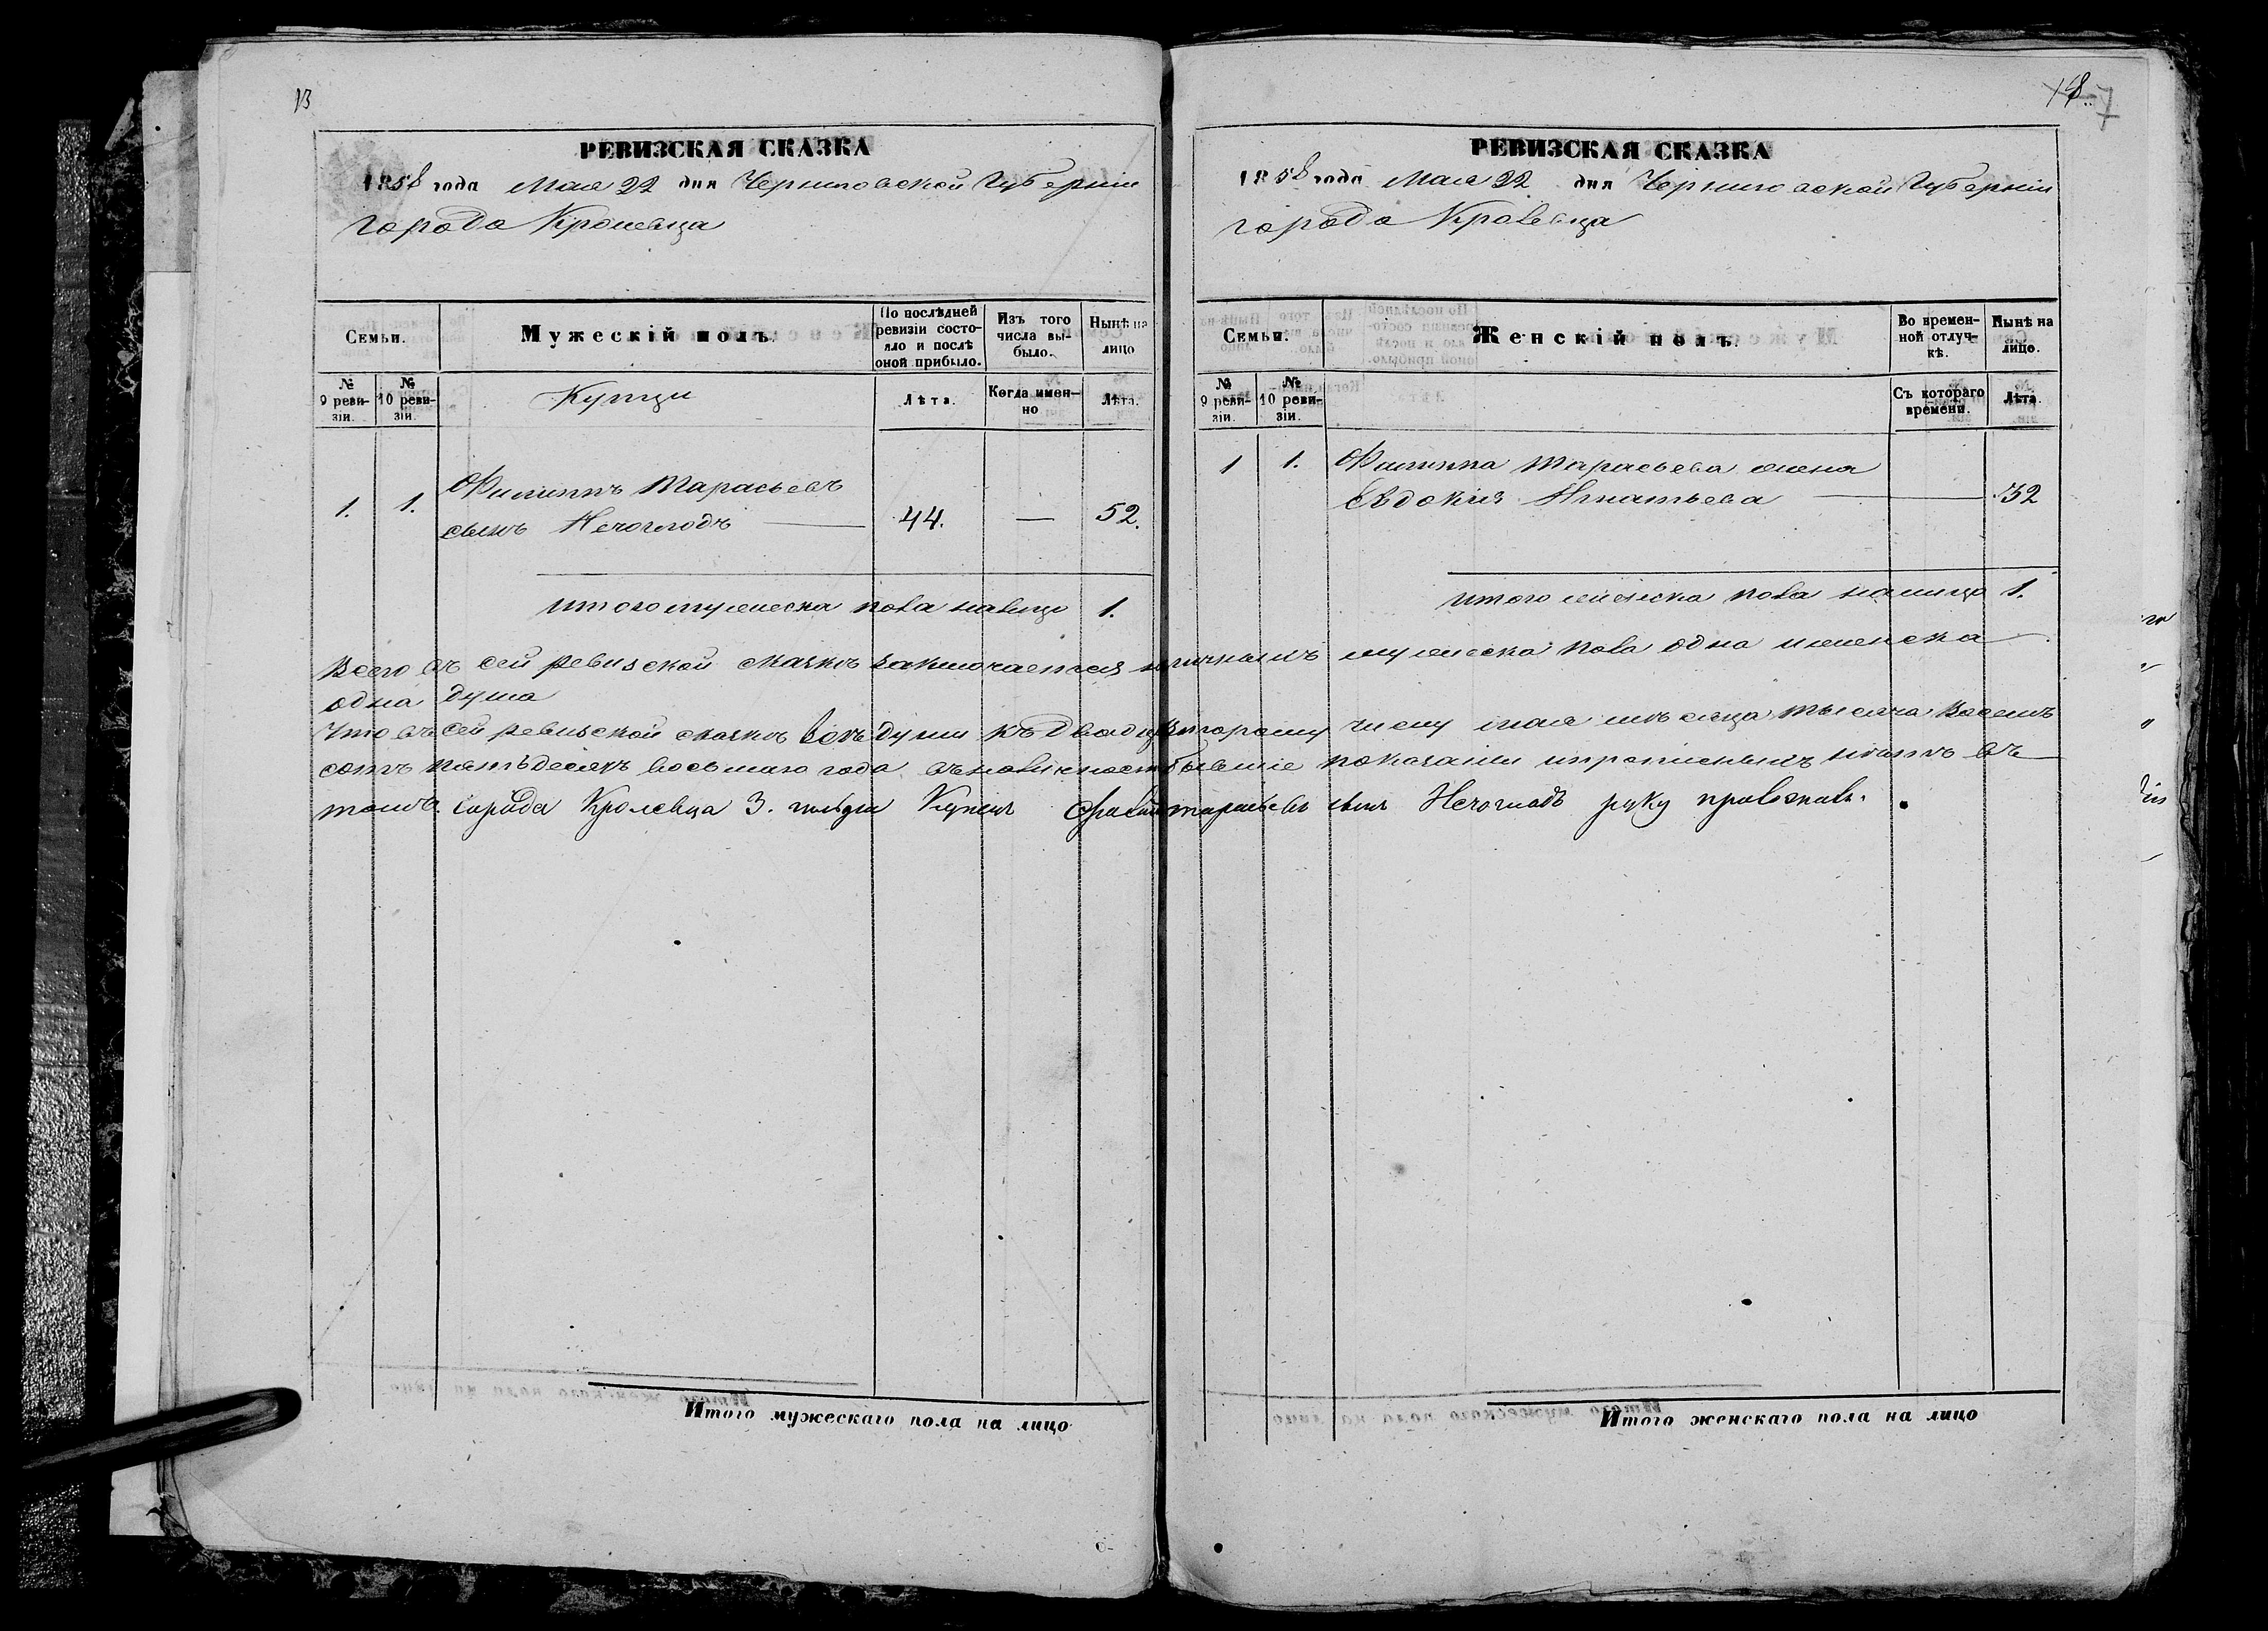 13
РЕВИЗСКАЯ СКАЗКА
1858 года Мая 22 дня Черниговской Губерніи
города Кролевца
Семьи.
Мужескій полъ.
По послѣдней ревизіи состояло и послѣ оной прибыло.
Изъ того числа выбыло.
Нынѣ на лицо
№ 9 ревизіи.
№ 10 ревизіи.
Купци
Лѣта.
Когда именно
Лѣта.
1. 1. Филиппъ Тарасьевъ
сынъ Нечоглодъ 44. — 52.
итого мужеска пола налицо 1.
18. 7
РЕВИЗСКАЯ СКАЗКА
1858 года Мая 22 дня Черниговской Губерніи
города Кролевца
Семьи.
Женскій полъ.
Во временной отлучкѣ.
Нынѣ на лицо.
№ 9 ревизіи.
№ 10 ревизіи.
Съ котораго времени.
Лѣта.
1 1. Филиппа Тарасьева жена
Евдокия Игнатьева 32
итого женска пола налицо 1.
Всего въ сей ревизской сказкѣ заключается наличныхъ мужеска пола одна и женска
одна душа
Что въ сей ревизской сказкѣ всѣ души къ Двадц второму числу мая мѣсяца тысяча восемъ
сотъ пятьдесятъ восьмаго года бывшіе показаны и прописныхъ нѣтъ въ
томъ города Кролевца 3. гильди Купец Тарасьевъ сынъ Нечоглодъ руку приложилъ.
Итого мужескаго пола на лицо
Итого женскаго пола на лицо